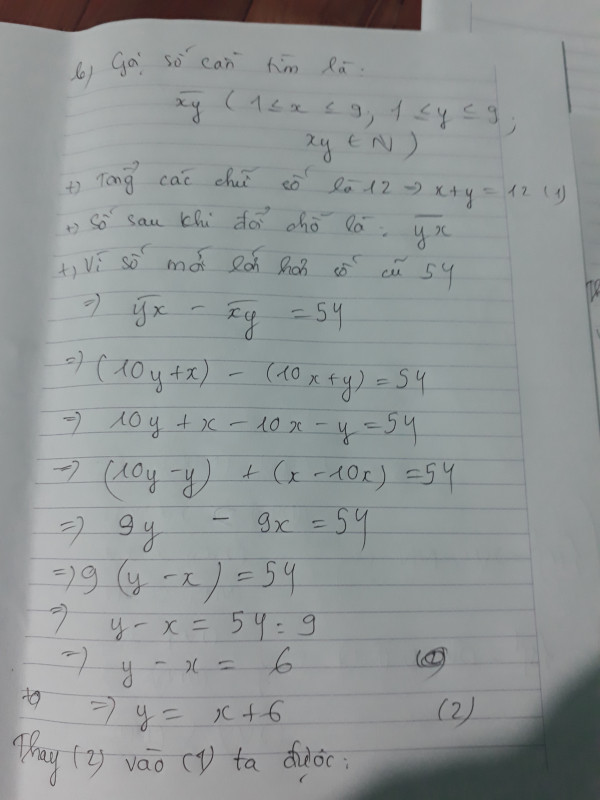 b, Gọi số cần tìm là:
xy (1 ≤ x ≤ 9, 1 ≤ y ≤ 9;
xy ∈ N)
+) Tổng các chữ số là 12 => x+y = 12 (1)
+) Số sau khi đổi chỗ là: yx
+, Vì số mới lớn hơn số cũ 54
=> yx - xy = 54
=> (10y+x) - (10x+y) = 54
=> 10y + x - 10x - y = 54
=> (10y - y) + (x - 10x) = 54
=> 9y - 9x = 54
=> 9 (y - x) = 54
=> y - x = 54 : 9
=> y - x = 6
=> y = x+6 (2)
Thay (2) vào (1) ta được: